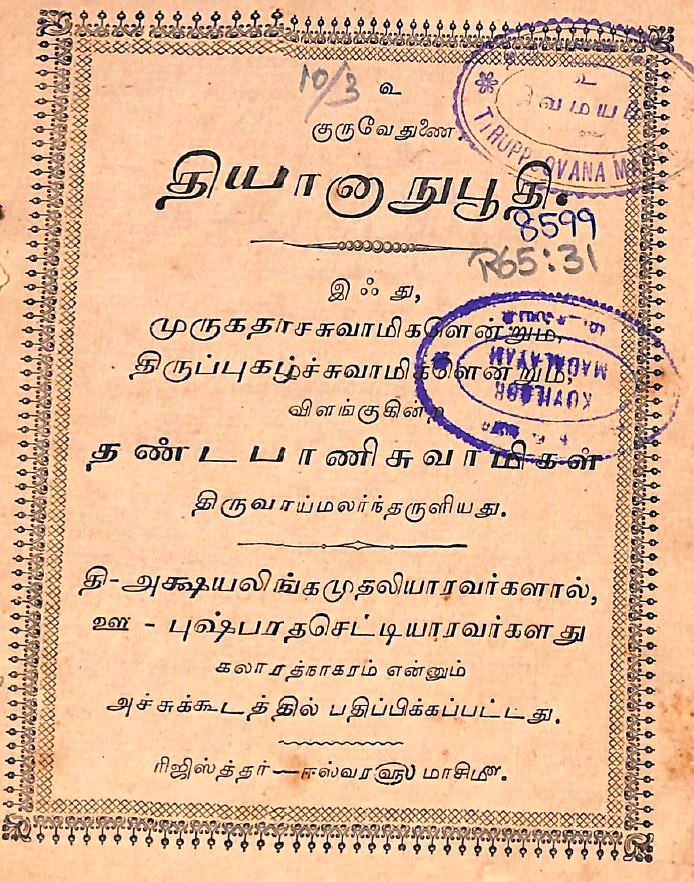 10/3 உ
குருவேதுணை.
தியானாநுபூதி.
8599
R65:31
இஃது,
முருகதாசசுவாமிகளென்றும்,
திருப்புகழ்ச்சுவாமிகளென்றும்,
விளங்குகின்ற
தண்டபாணிசுவாமிகள்
திருவாய்மலர்ந்தருளியது.
தி-அக்ஷயலிங்கமுதலியாரவர்களால்,
ஊ - புஷ்பரதசெட்டியாரவர்களது
கலாரத்நாகரம் என்னும்
அச்சுக்கூடத்தில் பதிப்பிக்கப்பட்டது.
ரிஜிஸ்த்தர்—ஈஸ்வர௵ மாசி௴.
உ
சிவமயம்
KOVILOOR
MADALAYAM